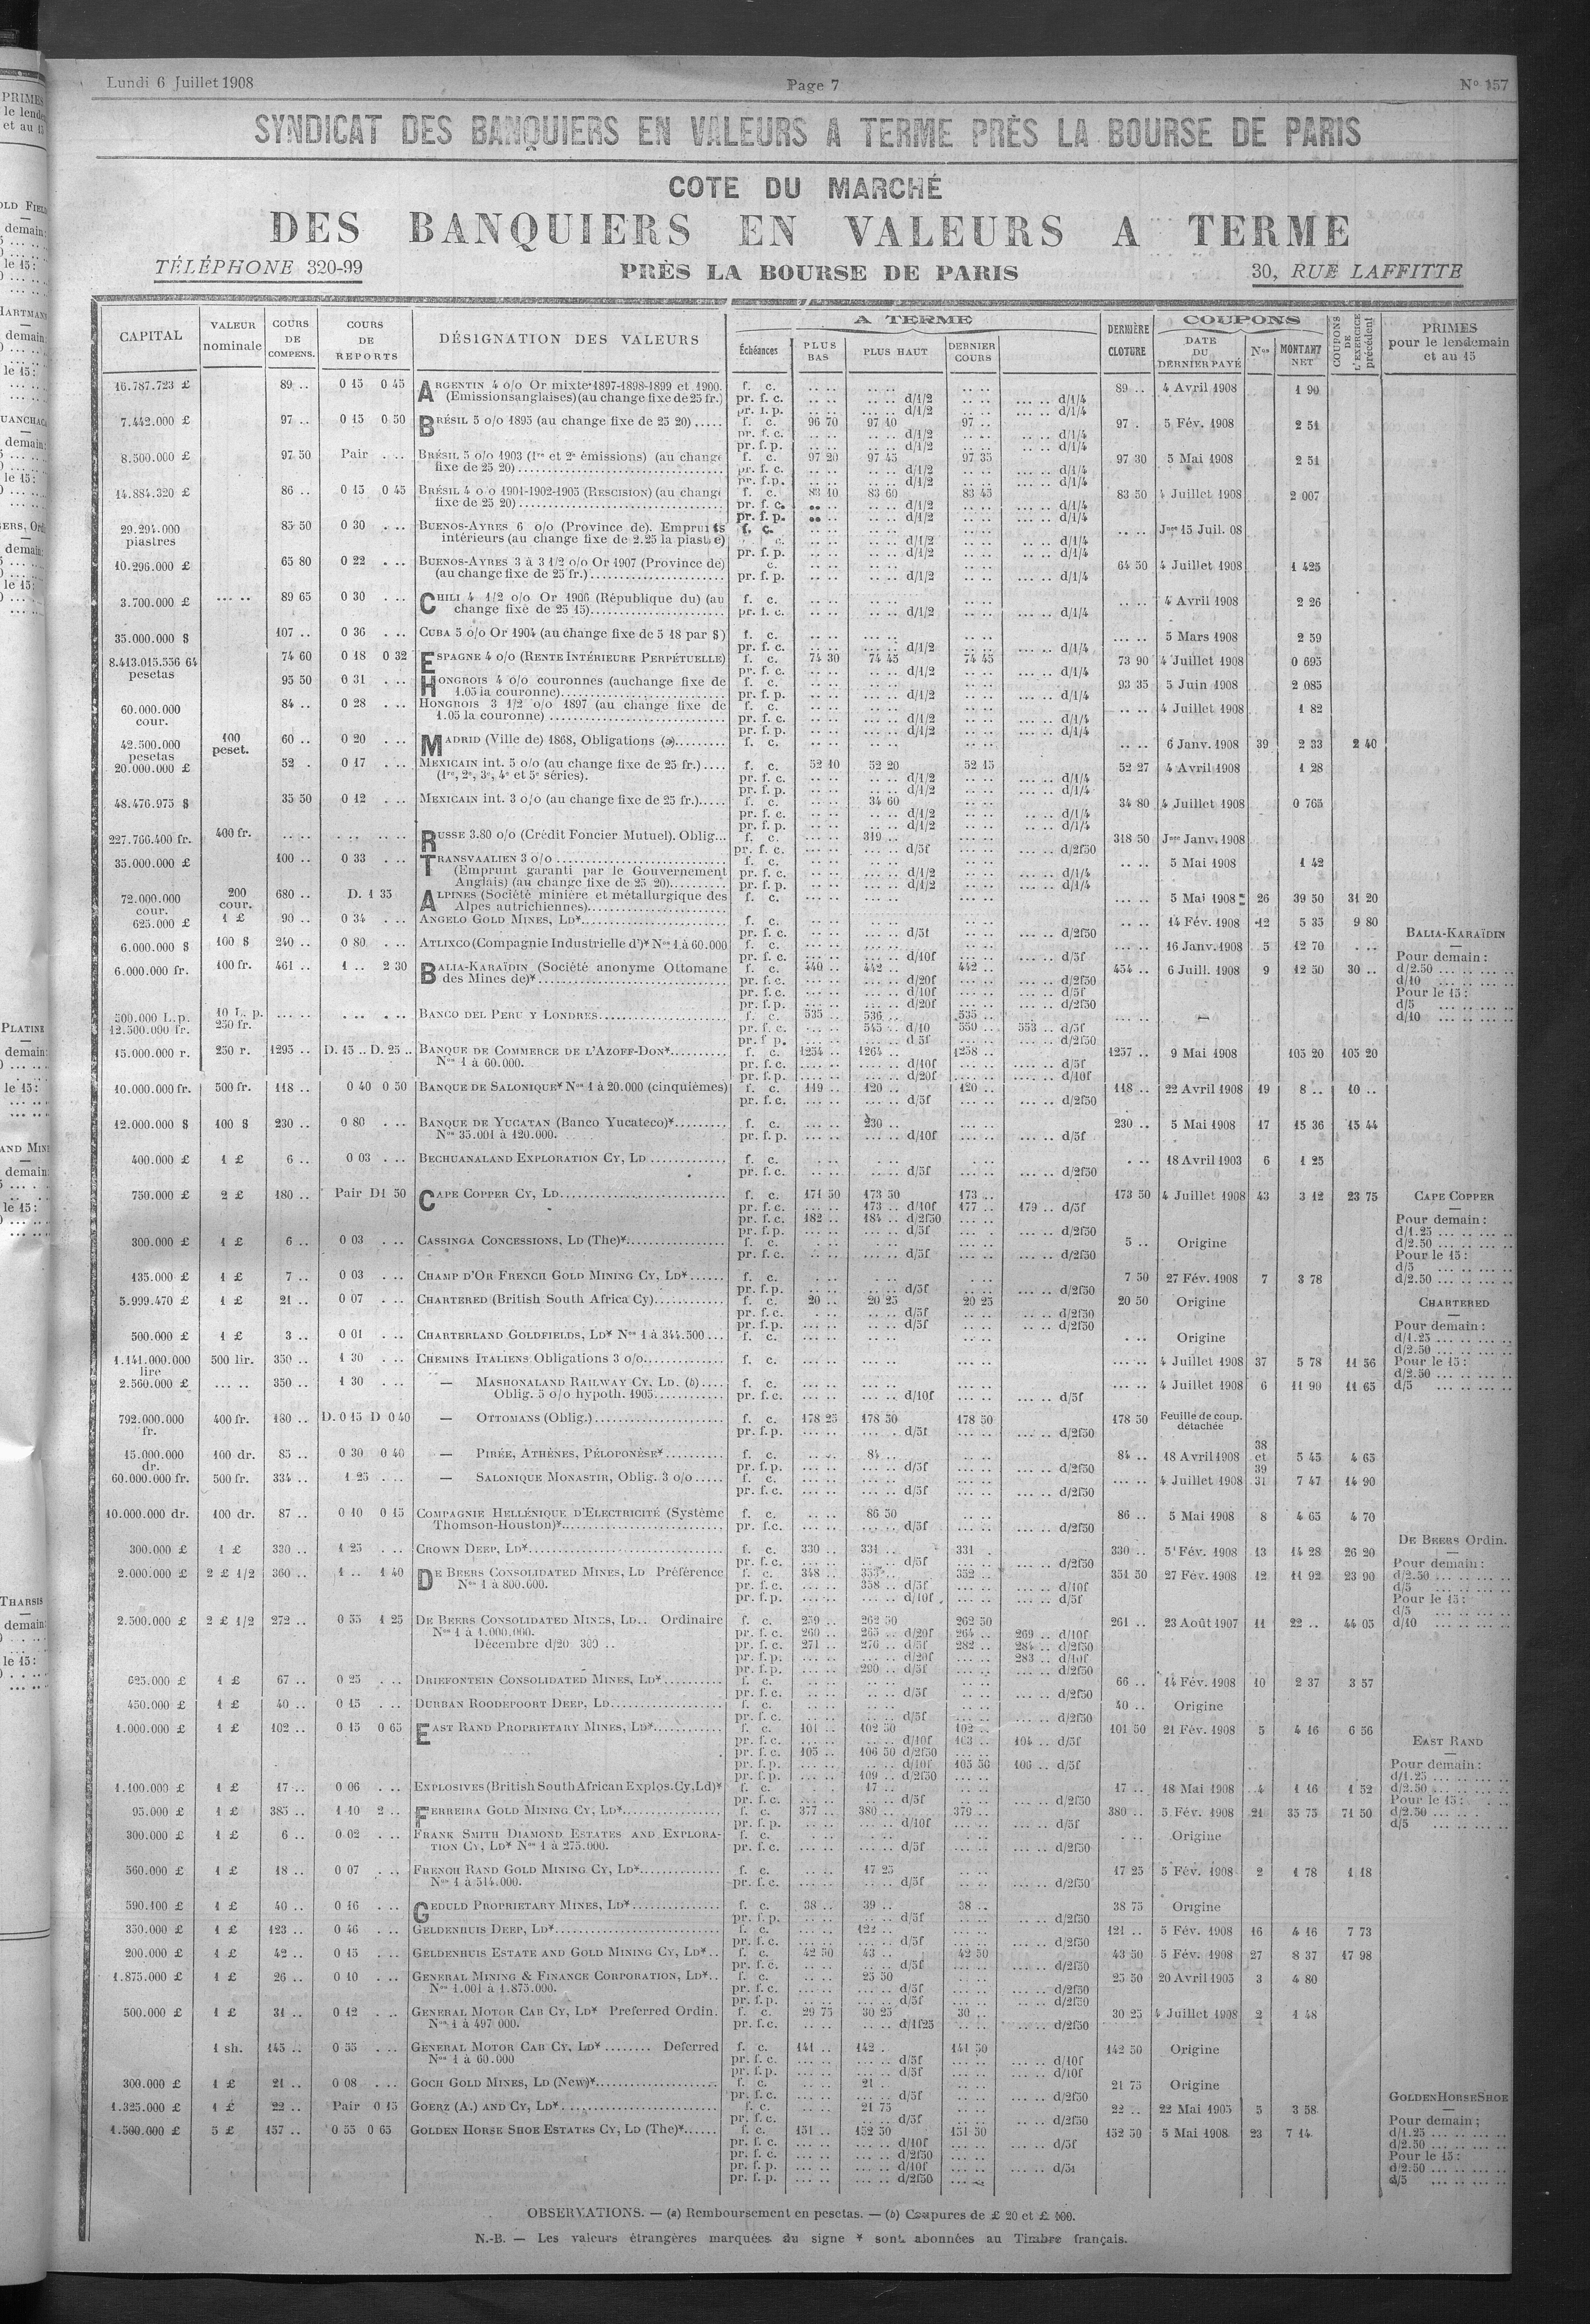 Lundi 6 Juillet 1908 Page 7 No 157
SYNDICAT DES BANQUIERS EN VALEURS A TERME PRÈS LA BOURSE DE PARIS
COTE DU MARCHÉ
DES BANQUIERS EN VALEURS A TERME
TÉLÉPHONE 320-99 PRÈS LA BOURSE DE PARIS 30, RUE LAFFITTE
CAPITAL VALEUR nominale COURS DE COMPENS. COURS DE REPORTS DÉSIGNATION DES VALEURS A TERME Échéances PLUS BAS PLUS HAUT DERNIER COURS DERNIÈRE CLOTURE COUPONS DATE DU DERNIER PAYÉ Nos MONTANT NET COUPONS DE L'EXERCICE précédent PRIMES pour le lendemain et au 15
16.787.723 £ 89 .. 0 15 0 45 ARGENTIN 4 o/o Or mixte 1897-1898-1899 et 1900. f. c. 89 .. 4 Avril 1908 1 90
(Emissions anglaises) (au change fixe de 25 fr.) pr. f. c. d/1/2 d/1/4
7.442.000 £ 97 .. 0 15 0 50 BRÉSIL 5 o/o 1895 (au change fixe de 25 20) f. c. 96 70 97 10 97 .. 97 . 5 Fév. 1908 2 51
8.500.000 £ 97 50 Pair BRÉSIL 5 o/o 1903 (1re et 2e émissions) (au change f. c. 97 20 97 45 97 35 97 30 5 Mai 1908 2 51
fixe de 25 20) pr. f. c. d/1/2 d/1/4
14.884.320 £ 86 .. 0 15 0 45 BRÉSIL 4 o/o 1901-1902-1905 (RESCISION) (au change f. c. 83 10 83 60 83 45 83 50 4 Juillet 1908 2 007
fixe de 25 20) pr. f. c. d/1/2 d/1/4
29.294.000 piastres 85 50 0 30 BUENOS-AYRES 6 o/o (Province de). Emprunts f. c. Jce 15 Juil. 08
intérieurs (au change fixe de 2.25 la piastre) d/1/2 d/1/4
10.296.000 £ 65 80 0 22 BUENOS-AYRES 3 à 3 1/2 o/o Or 1907 (Province de) 64 50 4 Juillet 1908 1 425
(au change fixe de 25 fr.) pr. f. p. d/1/2 d/1/4
3.700.000 £ 89 65 0 30 CHILI 4 1/2 o/o Or 1906 (République du) (au f. c. 4 Avril 1908 2 26
change fixe de 25 15) d/1/2 d/1/4
35.000.000 $ 107 .. 0 36 CUBA 5 o/o Or 1904 (au change fixe de 5 18 par $) f. c. 5 Mars 1908 2 59
8.413.015.556 64 pesetas 74 60 0 18 0 32 ESPAGNE 4 o/o (RENTE INTÉRIEURE PERPÉTUELLE) f. c. 74 30 74 45 74 45 73 90 4 Juillet 1908 0 695
95 50 0 31 HONGROIS 4 o/o couronnes (au change fixe de f. c. 93 35 5 Juin 1908 2 085
1.05 la couronne) pr. f. p. d/1/2 d/1/4
60.000.000 cour. 84 .. 0 28 HONGROIS 3 1/2 o/o 1897 (au change fixe de f. c. 4 Juillet 1908 1 82
1.05 la couronne) pr. f. c. d/1/2 d/1/4
42.500.000 pesetas 100 peset. 60 .. 0 20 MADRID (Ville de) 1868, Obligations (a) f. c. 6 Janv. 1908 39 2 33 2 40
20.000.000 £ 52 . 0 17 MEXICAIN int. 5 o/o (au change fixe de 25 fr.) f. c. 52 10 52 20 52 15 52 27 4 Avril 1908 1 28
(1re, 2e, 3e, 4e et 5e séries). pr. f. c. d/1/2 d/1/4
48.476.975 $ 35 50 0 12 MEXICAIN int. 3 o/o (au change fixe de 25 fr.) f. c. 34 60 34 80 4 Juillet 1908 0 765
227.766.400 fr. 400 fr. RUSSE 3.80 o/o (Crédit Foncier Mutuel). Oblig... f. c. 319 .. 318 50 Jce Janv. 1908
35.000.000 £ 100 .. 0 33 TRANSVAALIEN 3 o/o f. c. 5 Mai 1908 1 42
(Emprunt garanti par le Gouvernement pr. f. c. d/1/2 d/1/4
Anglais) (au change fixe de 25 20) pr. f. p. d/1/2 d/1/4
72.000.000 cour. 200 cour. 680 .. D. 1 35 ALPINES (Société minière et métallurgique des f. c. 5 Mai 1908 26 39 50 31 20
Alpes autrichiennes)
625.000 £ 1 £ 90 .. 0 34 ANGELO GOLD MINES, LD* f. c. 14 Fév. 1908 12 5 35 9 80
6.000.000 $ 100 $ 240 .. 0 80 ATLIXCO (Compagnie Industrielle d')* Nos 1 à 60.000 f. c. 16 Janv. 1908 5 12 70
6.000.000 fr. 100 fr. 461 .. 1 .. 2 30 BALIA-KARAÏDIN (Société anonyme Ottomane f. c. 440 .. 442 .. 442 .. 454 .. 6 Juill. 1908 9 12 50 30 ..
des Mines de)* pr. f. c. d/20f d/2f50
500.000 L.p. 10 L. p. BANCO DEL PERU Y LONDRES f. c. 535 .. 536 .. 535 ..
12.500.000 fr. 250 fr. pr. f. c. 545 .. d/10 550 .. 553 .. d/5f
15.000.000 r. 250 r. 1295 .. D. 15 .. D. 25 .. BANQUE DE COMMERCE DE L'AZOFF-DON* f. c. 1254 .. 1264 .. 1258 .. 1257 .. 9 Mai 1908 105 20 105 20
Nos 1 à 60.000. pr. f. c. d/10f d/5f
10.000.000 fr. 500 fr. 118 .. 0 40 0 50 BANQUE DE SALONIQUE* Nos 1 à 20.000 (cinquièmes) f. c. 119 .. 120 .. 120 .. 118 .. 22 Avril 1908 19 8 .. 10 ..
12.000.000 $ 100 $ 230 .. 0 80 BANQUE DE YUCATAN (Banco Yucateco)* f. c. 230 .. 230 .. 5 Mai 1908 17 15 36 15 44
Nos 35.001 à 120.000. pr. f. p. d/10f d/5f
400.000 £ 1 £ 6 .. 0 03 BECHUANALAND EXPLORATION CY, LD f. c. 18 Avril 1903 6 1 25
750.000 £ 2 £ 180 .. Pair D1 50 CAPE COPPER CY, LD f. c. 171 50 173 50 173 .. 173 50 4 Juillet 1908 43 3 12 23 75
pr. f. c. 173 .. d/10f 177 .. 179 .. d/5f
pr. f. c. 182 .. 184 .. d/2f50
300.000 £ 1 £ 6 .. 0 03 CASSINGA CONCESSIONS, LD (The)* f. c. 5 .. Origine
135.000 £ 1 £ 7 .. 0 03 CHAMP D'OR FRENCH GOLD MINING CY, LD* f. c. 7 50 27 Fév. 1908 7 3 78
5.999.470 £ 1 £ 21 .. 0 07 CHARTERED (British South Africa Cy) f. c. 20 .. 20 25 20 25 20 50 Origine
500.000 £ 1 £ 3 .. 0 01 CHARTERLAND GOLDFIELDS, LD* Nos 1 à 344.500 f. c. Origine
1.141.000.000 lire 500 lir. 350 .. 1 30 CHEMINS ITALIENS Obligations 3 o/o f. c. 4 Juillet 1908 37 5 78 11 56
2.560.000 £ 350 .. 1 30 — MASHONALAND RAILWAY CY, LD. (b) f. c. 4 Juillet 1908 6 11 90 11 65
Oblig. 5 o/o hypoth. 1905 pr. f. c. d/10f d/5f
792.000.000 fr. 400 fr. 180 .. D. 0 15 D 0 40 — OTTOMANS (Oblig.) f. c. 178 25 178 50 178 50 178 50 Feuille de coup. détachée
15.000.000 dr. 100 dr. 85 .. 0 30 0 40 — PIRÉE, ATHÈNES, PÉLOPONÈSE* f. c. 84 .. 84 .. 18 Avril 1908 38 et 39 5 45 4 65
60.000.000 fr. 500 fr. 334 .. 1 25 — SALONIQUE MONASTIR, Oblig. 3 o/o f. c. 4 Juillet 1908 31 7 47 14 90
10.000.000 dr. 100 dr. 87 .. 0 10 0 15 COMPAGNIE HELLÉNIQUE D'ELECTRICITÉ (Système f. c. 86 50 86 .. 5 Mai 1908 8 4 65 4 70
Thomson-Houston)* pr. f.c. d/5f d/2f50
300.000 £ 1 £ 330 .. 1 25 CROWN DEEP, LD* f. c. 330 .. 331 .. 331 . 330 .. 5 Fév. 1908 13 14 28 26 20
2.000.000 £ 2 £ 1/2 360 .. 1 .. 1 40 DE BEERS CONSOLIDATED MINES, LD Préférence f. c. 348 .. 352 .. 351 50 27 Fév. 1908 12 11 92 23 90
Nos 1 à 800.000. pr. f. c. 358 .. d/5f d/10f
2.500.000 £ 2 £ 1/2 272 .. 0 55 1 25 DE BEERS CONSOLIDATED MINES, LD.. Ordinaire f. c. 259 .. 262 50 262 50 261 .. 23 Août 1907 11 22 .. 44 05
Nos 1 à 1.000.000. pr. f. c. 260 .. 265 .. d/20f 264 .. 269 .. d/10f
Décembre d/20 300 .. pr. f. c. 271 .. 276 .. d/5f 282 .. 284 .. d/2f50
pr. f. p. d/20f 283 .. d/10f
pr. f. p. 290 .. d/5f d/2f50
625.000 £ 1 £ 67 .. 0 25 DRIEFONTEIN CONSOLIDATED MINES, LD* f. c. 66 .. 14 Fév. 1908 10 2 37 3 57
450.000 £ 1 £ 40 .. 0 15 DURBAN ROODEPOORT DEEP, LD f. c. 40 .. Origine
1.000.000 £ 1 £ 102 .. 0 15 0 65 EAST RAND PROPRIETARY MINES, LD* f. c. 101 .. 102 50 102 .. 101 50 21 Fév. 1908 5 4 16 6 56
pr. f. c. d/10f 103 .. 104 .. d/5f
pr. f. c. 105 .. 106 50 d/2f50
pr. f. p. d/10f 105 50 106 .. d/5f
pr. f. p. 109 .. d/2f50
1.100.000 £ 1 £ 17 .. 0 06 EXPLOSIVES (British South African Explos. Cy, Ld)* f. c. 17 .. 17 .. 18 Mai 1908 4 1 16 1 52
95.000 £ 1 £ 385 .. 1 10 2 .. FERREIRA GOLD MINING CY, LD* f. c. 377 .. 380 .. 379 .. 380 .. 5 Fév. 1908 21 35 75 71 50
300.000 £ 1 £ 6 .. 0 02 FRANK SMITH DIAMOND ESTATES AND EXPLORA- f. c. Origine
TION CY, LD* Nos 1 à 275.000. pr. f. c. d/5f d/2f50
560.000 £ 1 £ 18 .. 0 07 FRENCH RAND GOLD MINING CY, LD* f. c. 17 25 17 25 5 Fév. 1908 2 1 78 1 18
Nos 1 à 514.000. pr. f. c. d/5f d/2f50
590.100 £ 1 £ 40 .. 0 16 GEDULD PROPRIETARY MINES, LD* f. c. 38 .. 39 .. 38 .. 38 75 Origine
350.000 £ 1 £ 123 .. 0 46 GELDENHUIS DEEP, LD* f. c. 122 .. 121 .. 5 Fév. 1908 16 4 16 7 73
200.000 £ 1 £ 42 .. 0 15 GELDENHUIS ESTATE AND GOLD MINING CY, LD* f. c. 42 50 43 .. 42 50 43 50 5 Fév. 1908 27 8 37 17 98
1.875.000 £ 1 £ 26 .. 0 10 GENERAL MINING & FINANCE CORPORATION, LD* f. c. 25 50 25 50 20 Avril 1905 3 4 80
Nos 1.001 à 1.875.000. pr. f. c. d/5f d/2f50
500.000 £ 1 £ 31 .. 0 12 GENERAL MOTOR CAB CY, LD* Preferred Ordin. f. c. 29 75 30 25 30 .. 30 25 4 Juillet 1908 2 1 48
Nos 1 à 497.000. pr. f.c. d/1f25 d/2f50
1 sh. 145 .. 0 55 GENERAL MOTOR CAB CY, LD* Deferred f. c. 141 .. 142 . 141 50 142 50 Origine
Nos 1 à 60.000 pr. f. c. d/5f d/10f
300.000 £ 1 £ 21 .. 0 08 GOCH GOLD MINES, LD (New)* f. c. 21 . 21 75 Origine
1.325.000 £ 1 £ 22 .. Pair 0 15 GOERZ (A.) AND CY, LD* f. c. 21 75 22 .. 22 Mai 1905 5 3 58
1.500.000 £ 5 £ 157 .. 0 55 0 65 GOLDEN HORSE SHOE ESTATES CY, LD (The)* f. c. 151 .. 152 50 151 50 152 50 5 Mai 1908 23 7 14
pr. f. c. d/10f d/5f
pr. f. c. d/2f50
pr. f. p. d/10f
pr. f. p. d/2f50
BALIA-KARAÏDIN
Pour demain :
d/2.50
d/10
Pour le 15 :
d/5
d/10
CAPE COPPER
Pour demain :
d/1.25
d/2.50
Pour le 15 :
d/5
d/2.50
CHARTERED
Pour demain :
d/1.25
d/2.50
Pour le 15 :
d/2.50
d/5
DE BEERS Ordin.
Pour demain :
d/2.50
d/5
Pour le 15 :
d/5
d/10
EAST RAND
Pour demain :
d/1.25
d/2.50
Pour le 15 :
d/2.50
d/5
GOLDEN HORSE SHOE
Pour demain ;
d/1.25
d/2.50
Pour le 15 :
d/2.50
d/5
OBSERVATIONS. — (a) Remboursement en pesetas. — (b) Coupures de £ 20 et £ 100.
N.-B. — Les valeurs étrangères marquées du signe * sont abonnées au Timbre français.